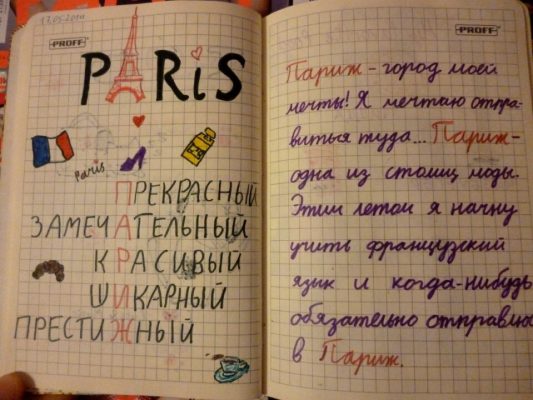 PROFF
PARiS
Paris
ПРЕКРАСНЫЙ
ЗАМЕЧАТЕЛЬНЫЙ
КРАСИВЫЙ
ШИКАРНЫЙ
ПРЕСТИЖНЫЙ
PROFF
Париж - город моей
мечты! Я мечтаю отпра-
виться туда... Париж -
одна из столиц моды.
Этим летом я начну
учить французский
язык и когда-нибудь
обязательно отправлюсь
в Париж.